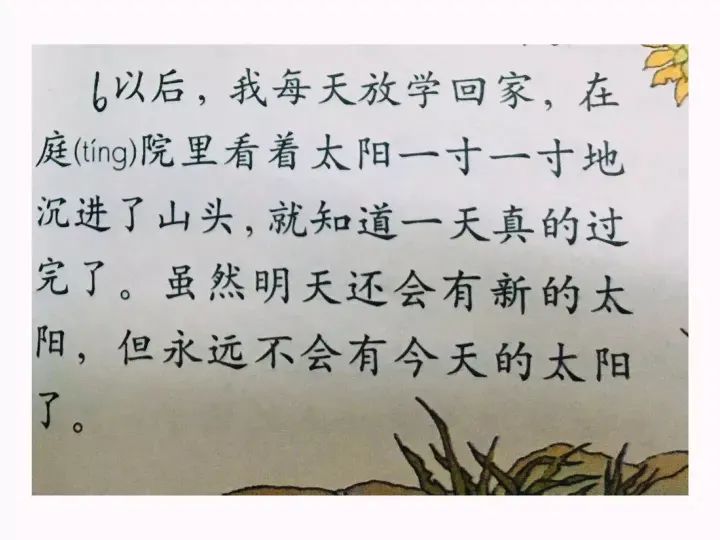 6以后，我每天放学回家，在
庭(tíng)院里看着太阳一寸一寸地
沉进了山头，就知道一天真的过
完了。虽然明天还会有新的太
阳，但永远不会有今天的太阳
了。